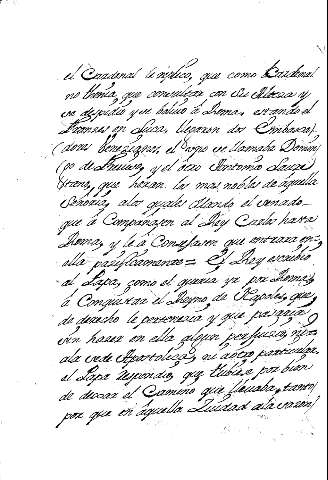 el Cardenal le replico, que como Cardenal
no tenia, que consultar con Su Alteza y
se despidio y se bolvio à Roma. estando el
Frances en Luca, llegaron dos Embaxa
dores Venezianos, el uno se llamaba Domin
go de Trevis, y el otro Antonio Lore
dano, que heran los mas nobles de aquella
Señoria, a los quales mando el senado
que a Compañasen al Rey Carlos hasta
Roma, y le a Consejasen que entrara en
ella pazificamente = El Rey escribio
al Papa, como el queria yr por Roma,
a Conquistar el Reyno de Napoles, que
de derecho le pertenezia y que pasaria
sin hazer en ella algun perjuizio, ni
a la sede Apostolica, ni a otro particular.
el Papa respondio, que tubiese por bien
de dexar el Camino que llevaba, tanto
por que en aquella Ziudad a la sazon